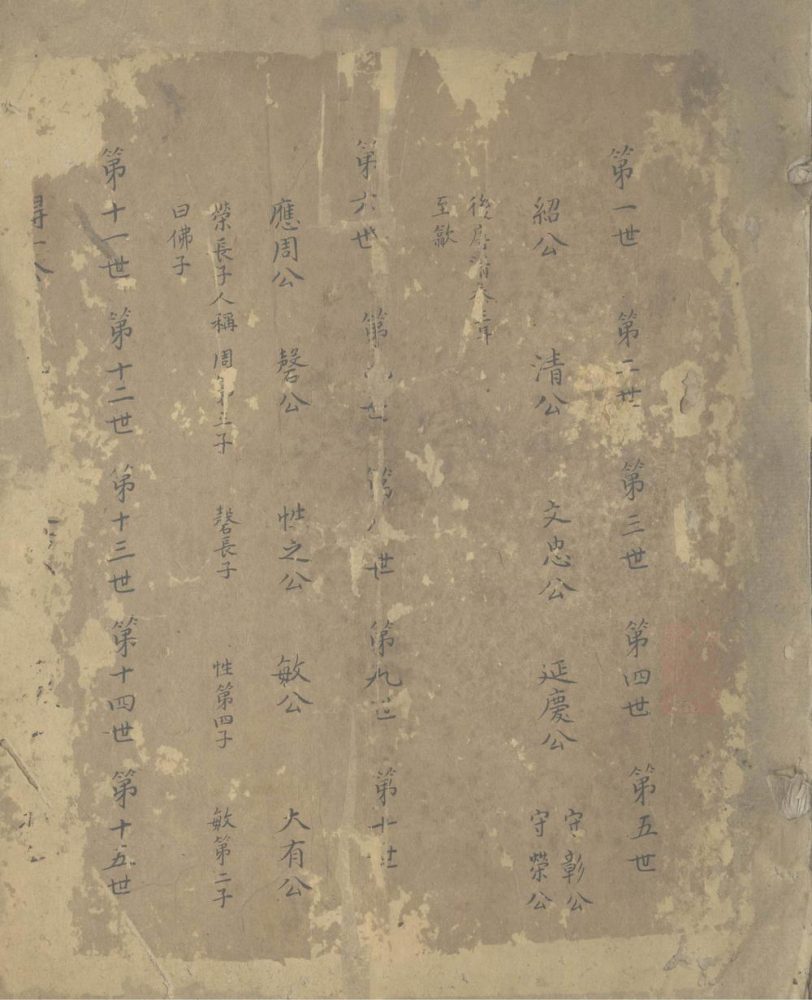 第一世 第二世 第三世 第四世 第五世
紹公 清公 文忠公 延慶公 守彰公
守榮公
後唐清泰三年
至歙
第六世 第七世 第八世 第九世 第十世
應周公 磬公 性之公 敏公 大有公
榮長子人稱 周第三子 磬長子 性第四子 敏第二子
曰佛子
第十一世 第十二世 第十三世 第十四世 第十五世